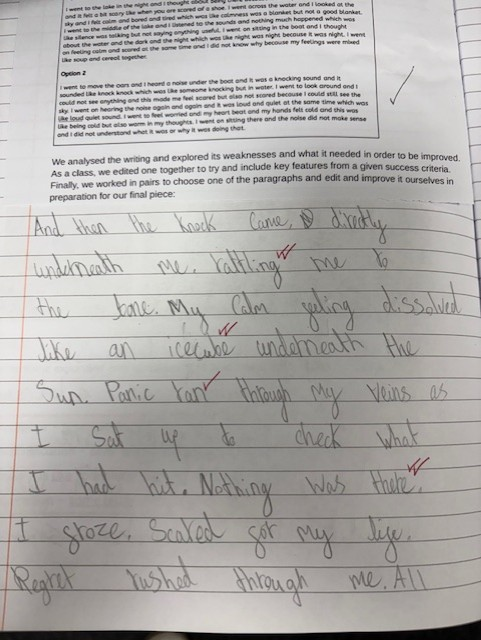 I went to the lake in the night and I thought about being
and it felt a bit scary like when you are scared of a shoe. I went across the water and I looked at the
sky and I felt calm and bored and tired which was like calmness was a blanket but not a good blanket.
I went to the middle of the lake and I listened to the sounds and nothing much happened which was
like silence was talking but not saying anything useful. I went on sitting in the boat and I thought
about the water and the dark and the night which was like night was night because it was night. I went
on feeling calm and scared at the same time and I did not know why because my feelings were mixed
like soup and cereal together.
Option 2
I went to move the oars and I heard a noise under the boat and it was a knocking sound and it
sounded like knock knock which was like someone knocking but in water. I went to look around and I
could not see anything and this made me feel scared but also not scared because I could still see the
sky. I went on hearing the noise again and again and it was loud and quiet at the same time which was
like loud quiet sound. I went to feel worried and my heart beat and my hands felt cold and this was
like being cold but also warm in my thoughts. I went on sitting there and the noise did not make sense
and I did not understand what it was or why it was doing that.
We analysed the writing and explored its weaknesses and what it needed in order to be improved.
As a class, we edited one together to try and include key features from a given success criteria.
Finally, we worked in pairs to choose one of the paragraphs and edit and improve it ourselves in
preparation for our final piece:
And then the knock came, directly
underneath me, rattling me to
the bone. My calm feeling dissolved
like an icecube underneath the
Sun. Panic ran through my veins as
I sat up to check what
I had hit. Nothing was there.
I froze. Scared for my life.
Regret rushed through me. All